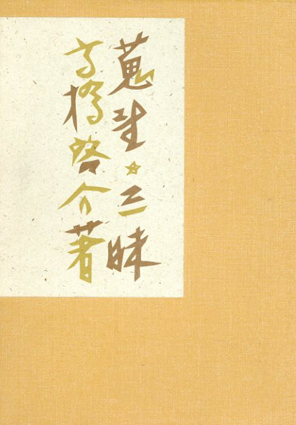 蒐集☆三昧
高橋啓介著